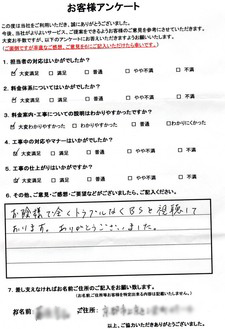 お客様アンケート
この度は当社をご利用いただき、誠にありがとうございました。
今後、当社がよりよいサービス、ご提案をできるようお客様のご意見を参考にさせていただきます。
大変お手数ですが、以下のアンケートにお答えいただきますようお願いいたします。
1. 担当者の対応はいかがでしたか?
大変満足 満足 普通 やや不満 不満
2. 料金体系についてはいかがでしたか?
大変満足 満足 普通 やや不満 不満
3. 料金案内・工事についての説明はわかりやすかったですか?
大変わかりやすかった わかりやすかった 普通 わかりにくかった
4. 工事中の対応やマナーはいかがでしたか?
大変満足 満足 普通 やや不満 不満
5. 工事の仕上がりはいかがですか?
大変満足 満足 普通 やや不満 不満
6. その他、ご意見・ご感想・ご要望などがございましたら、ご記入ください。
お陰様で全くトラブルなくBSを視聴して
おります。ありがとうございました。
7. 差し支えなければお名前ご住所のご記入をお願い致します。
お名前 ご住所:
以上、ご協力いただきありがとうございました。